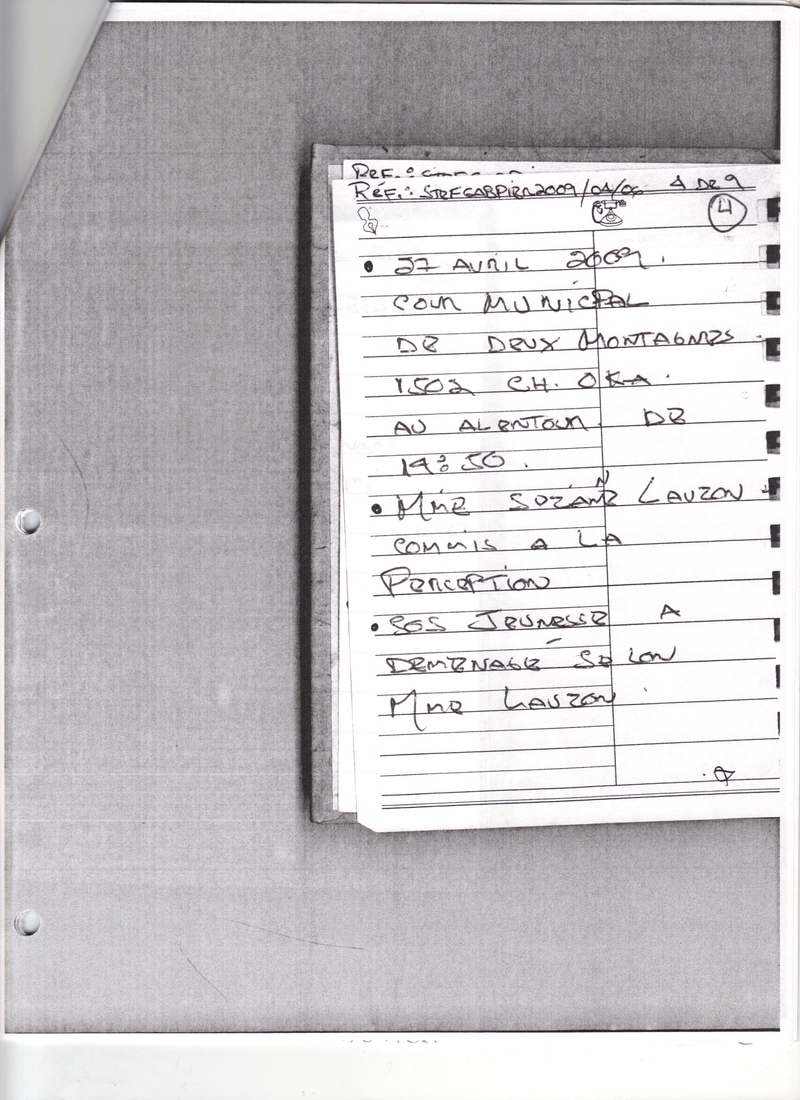 REF.:
RÉF.: STREGABPIER2009/04/06 4 DE 9
4
• 27 AVRIL 2009.
COUR MUNICPAL
DE DEUX MONTAGNES
1502 CH. OKA.
AU ALENTOUR DE
14:50.
• MME SUZANNE LAUZON
COMMIS A LA
PERCEPTION
• SOS JEUNESSE A
DEMENAGÉ SELON
MME LAUZON